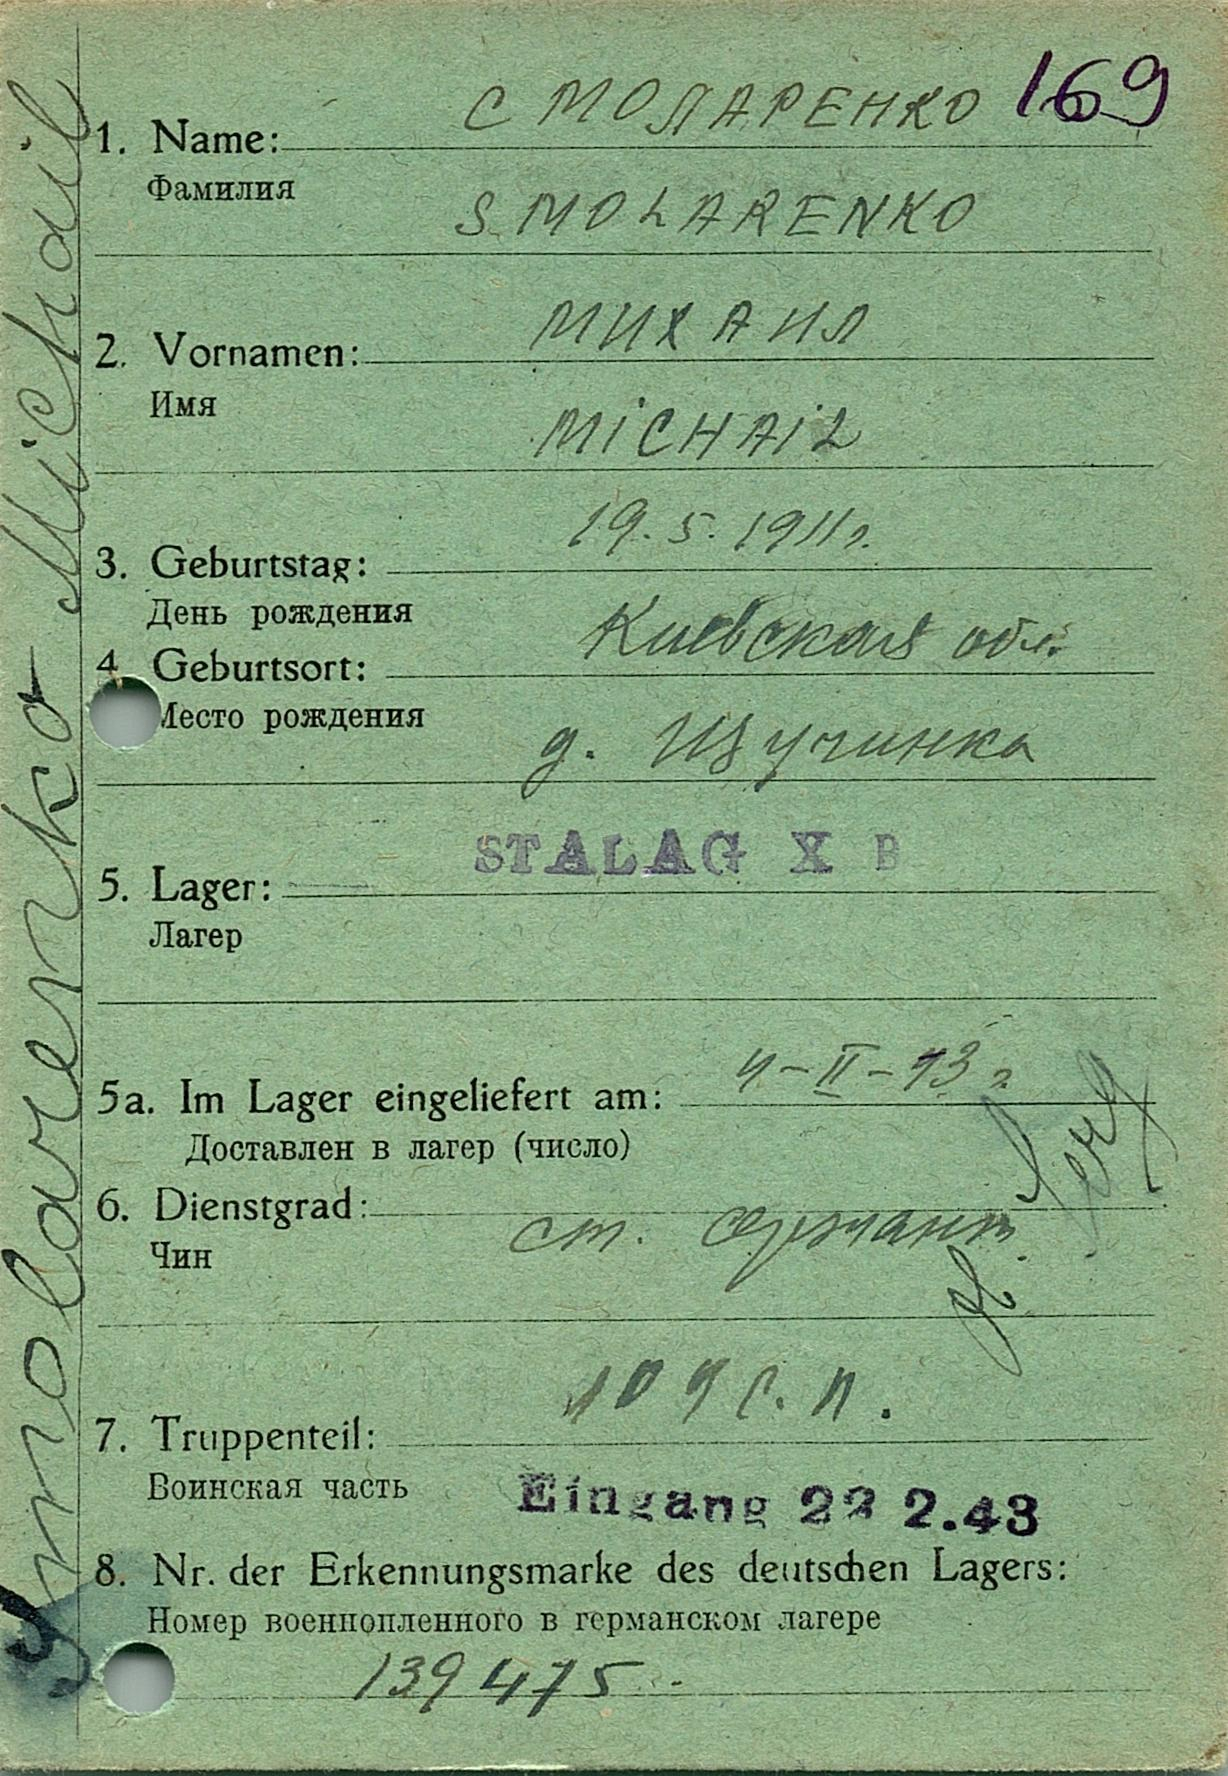 169
1. Name: СМОЛАРЕНКО
Фамилия
SMOLARENKO
2. Vornamen: МИХАИЛ
Имя
MiCHAiL
3. Geburtstag: 19.5.1911 г.
День рождения
4. Geburtsort: Киевская обл.
Место рождения
д. Щучинка
5. Lager: STALAG X B
Лагер
5a. Im Lager eingeliefert am: 4-II-43 г
Доставлен в лагер (число)
6. Dienstgrad: ст. сержант
Чин
7. Truppenteil: 109 с.п.
Воинская часть
Eingang 22 2.43
8. Nr. der Erkennungsmarke des deutschen Lagers:
Номер военнопленного в германском лагере
139475
Smolarenko Michail